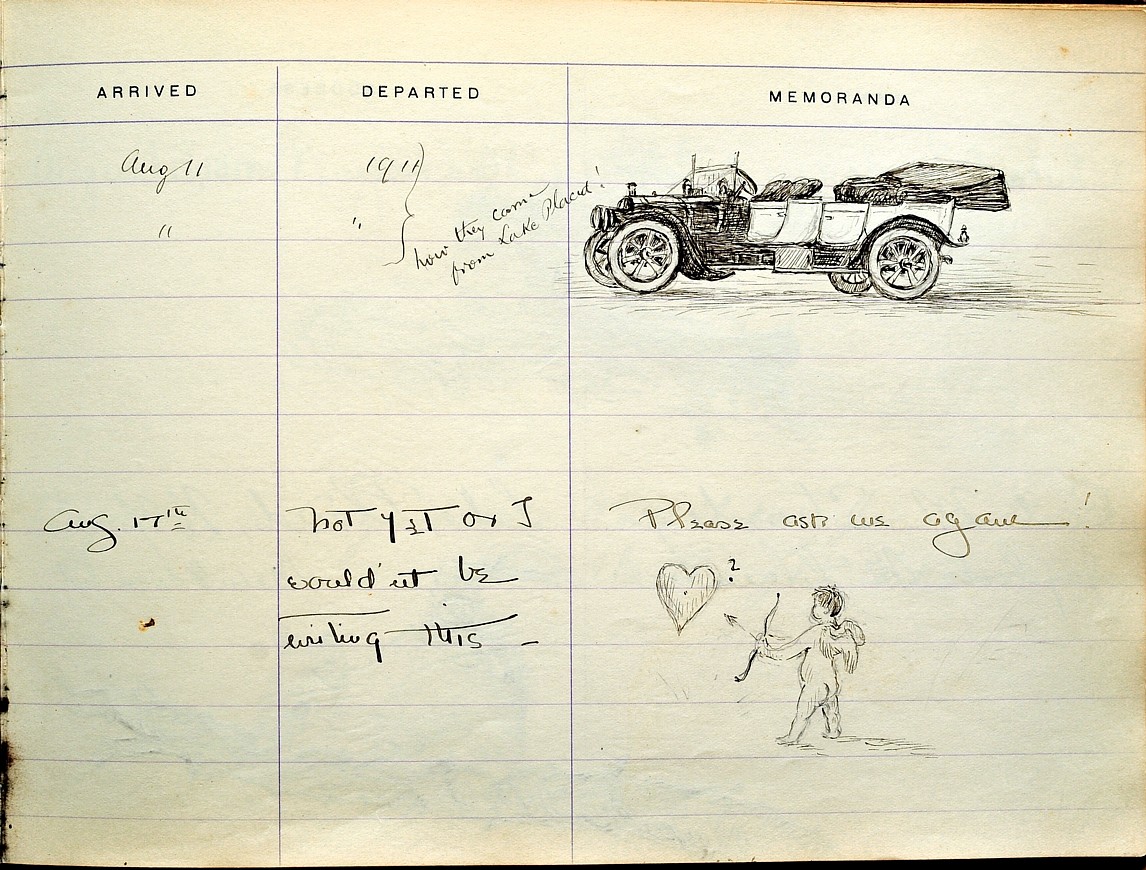 ARRIVED DEPARTED MEMORANDA
Aug 11 1911
" "
how they came
from Lake Placid!
Aug. 17th Not yet or I Please ask us again!
would'nt be
?
writing this –